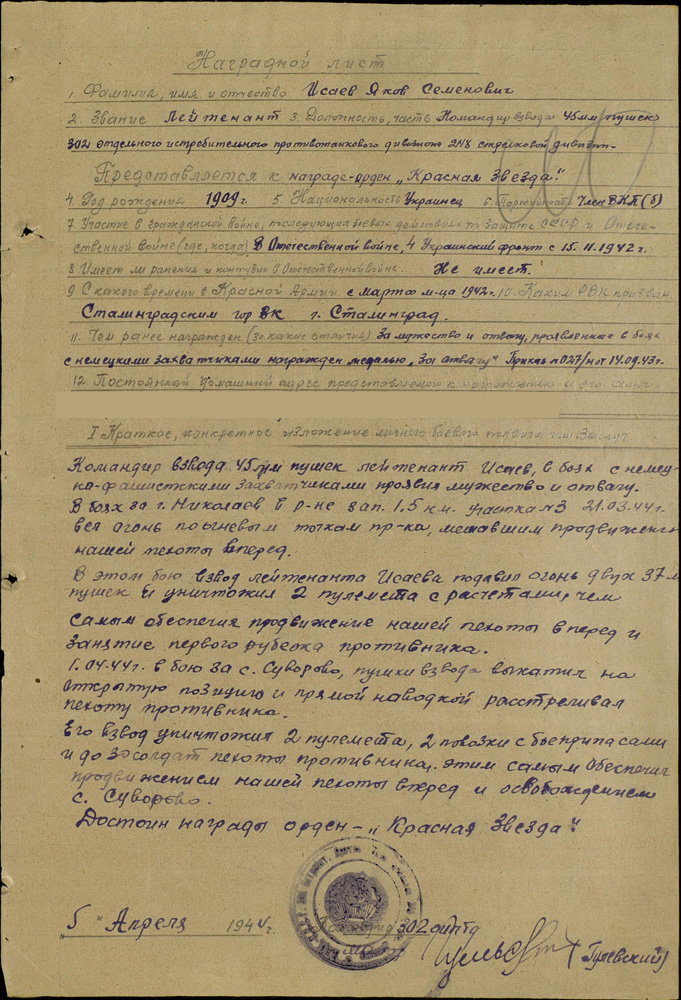 Наградной лист
1. Фамилия, имя и отчество Исаев Яков Семенович
2. Звание Лейтенант 3. Должность, часть Командир взвода 45 мм пушек
302 отдельного истребительного противотанкового дивизиона 248 стрелковой дивизии.
Представляется к награде-орден „Красная Звезда".
4. Год рождения 1909 г. 5. Национальность Украинец 6. Партийность Член ВКП(б)
7. Участие в гражданской войне, последующих боевых действиях по защите СССР и Отече-
ственной войне (где, когда) В Отечественной войне, 4 Украинский фронт с 15.11.1942 г.
8 Имеет ли ранения и контузии в Отечественной войне. Не имеет.
9 С какого времени в Красной Армии с марта м-ца 1942 г. 10. Каким РВК призван
Сталинградским гор ВК г. Сталинград.
11. Чем ранее награжден (за какие отличия) За мужество и отвагу, проявленные в боях
с немецкими захватчиками награжден медалью „За отвагу" Приказ №027/н от 14.09.43 г.
12. Постоянный домашний адрес представляемого к награждению и его семьи
I Краткое, конкретное изложение личного боевого подвига или заслуг
Командир взвода 45 мм пушек лейтенант Исаев, в боях с немец-
ко-фашистскими захватчиками проявил мужество и отвагу.
В боях за г. Николаев в р-не зап. 1,5 км. участка №3 21.03.44 г.
вел огонь по огневым точкам пр-ка, мешавшим продвижению
нашей пехоты вперед.
В этом бою взвод лейтенанта Исаева подавил огонь двух 37 м
пушек и уничтожил 2 пулемета с расчетами, чем
самым обеспечил продвижение нашей пехоты вперед и
занятие первого рубежа противника.
1.04.44 г. в бою за с. Суворово, пушки взвода выкатил на
открытую позицию и прямой наводкой расстреливал
пехоту противника.
Его взвод уничтожил 2 пулемета, 2 повозки с боеприпасами
и до 30 солдат пехоты противника, этим самым обеспечил
продвижением нашей пехоты вперед и освобождением
с. Суворово.
Достоин награды орден-„Красная Звезда".
„5" Апреля 1944 г.
Командир 302 оиптд
(Гулевский)